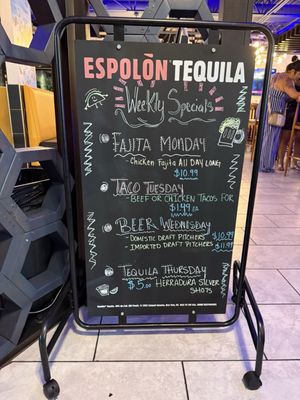 ESPOLÒN TEQUILA
Weekly Specials
FAJITA MONDAY
- Chicken Fajita ALL DAY LONG
$10.99
TACO TUESDAY
- BEEF OR CHICKEN TACOS FOR
$1.99 EA
BEER WEDNESDAY
- DOMESTIC DRAFT PITCHERS $10.99
- IMPORTED DRAFT PITCHERS $11.99
TEQUILA THURSDAY
$5.00 HERRADURA SILVER
SHOTS